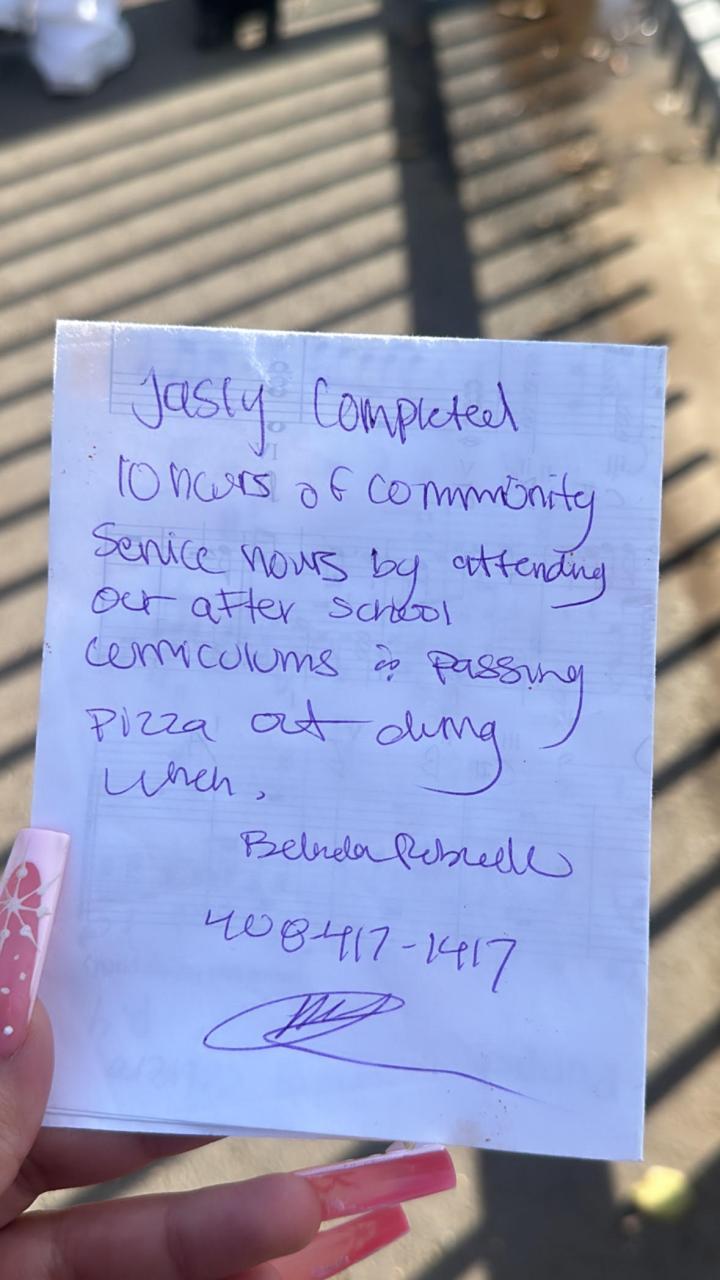 Jasly Completed
10 hours of community
Service hours by attending
our after school
curriculums & passing
pizza out during
lunch.
Belinda
408-417-1417